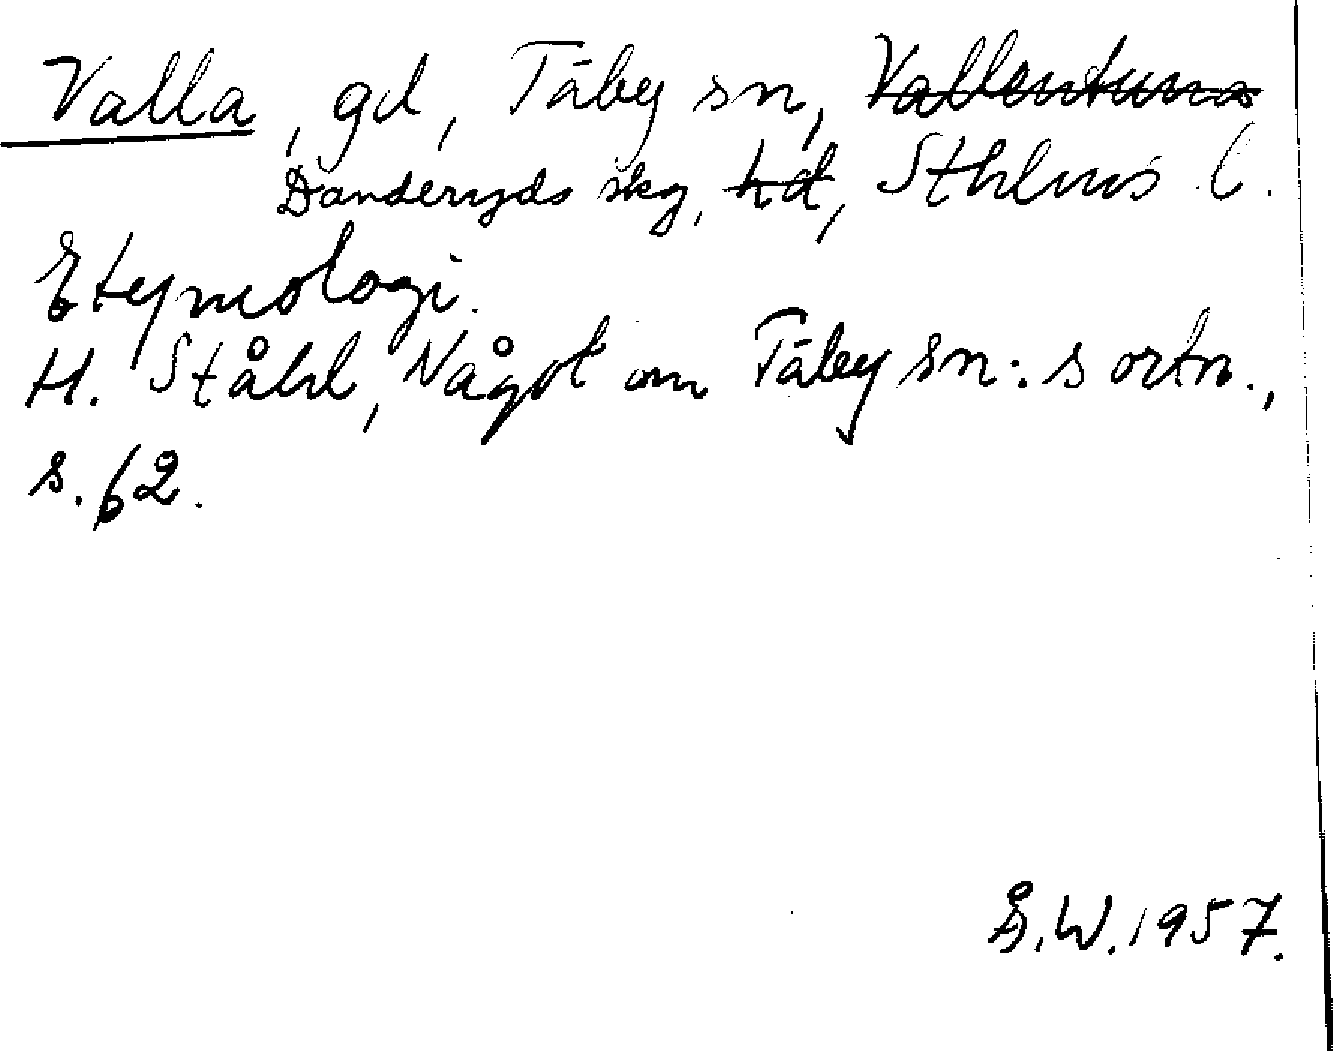 Valla, gd, Täby sn, Vallentuna
Danderyds skg, hd, Sthlms l.
Etymologi.
H. Ståhl, Något om Täby sn:s ortn.,
s. 62.
Å.W. 1957.